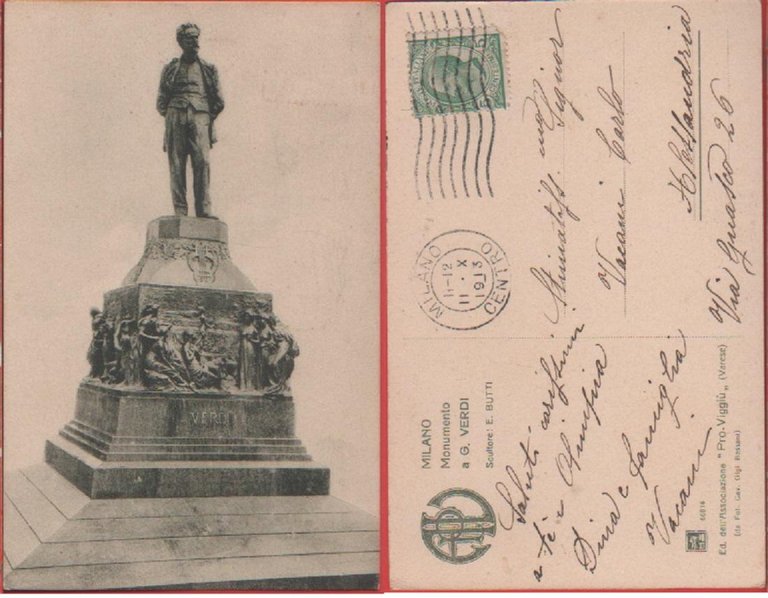 VERDI
MILANO
CENTRO
11-12
11·X
1913
MILANO
Monumento
a G. VERDI
Scultore: E. BUTTI
Stimatiss. mo Signor
Vacani Carlo
Alessandria
Via Guasco 26
Saluti carissimi
a te e Olimpia
Dina e famiglia
Vacani
66814
Ed. dell'Associazione "Pro-Viggiù„ (Varese)
(da Fot. Cav. Gigi Bassani)